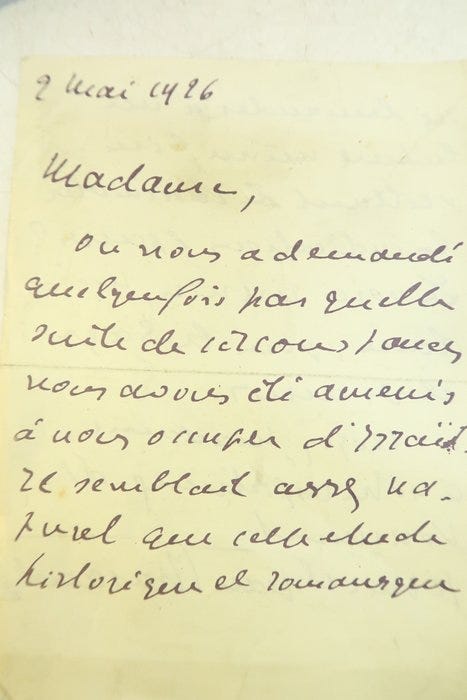 9 mai 1926
Madame,
On nous a demandé
quelquefois par quelle
suite de circonstances
nous avons été amenés
à nous occuper d'
Il semblait assez na-
turel que cette étude
historique et romanesque